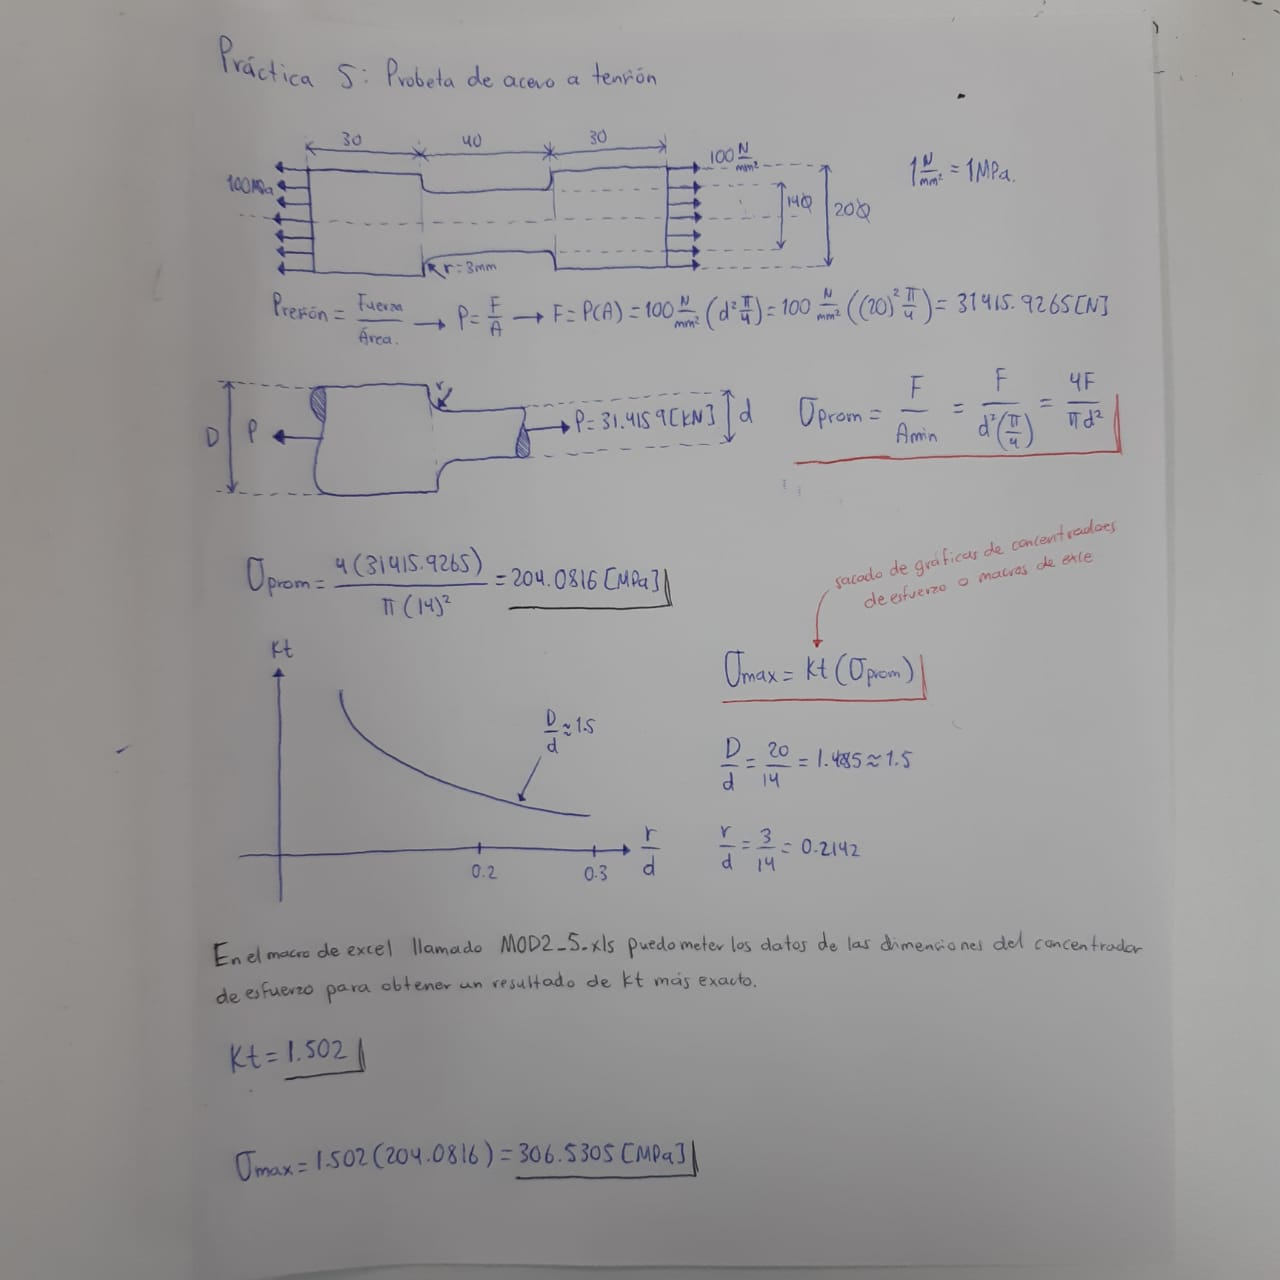 Práctica 5: Probeta de acero a tensión
30 40 30
100 N/mm²
100 MPa
1 N/mm² = 1MPa.
14Ø
20Ø
r=3mm
Presión = Fuerza/Área. → P= F/A → F= P(A) = 100 N/mm² (d² π/4) = 100 N/mm² ((20)² π/4) = 31415.9265[N]
r
D P
P= 31.4159[KN] d
σprom = F/Amin = F/d²(π/4) = 4F/πd²
σprom = 4(31415.9265)/π(14)² = 204.0816 [MPa]
sacado de gráficas de concentradoes
de esfuerzo o macros de exce
σmax = Kt (σprom)
Kt
D/d ≈ 1.5
r/d
0.2 0.3
D/d = 20/14 = 1.485 ≈ 1.5
r/d = 3/14 = 0.2142
En el macro de excel llamado MOD2_5.xls puedo meter los datos de las dimenciones del concentrador
de esfuerzo para obtener un resultado de Kt más exacto.
Kt = 1.502
σmax = 1.502(204.0816) = 306.5305 [MPa]